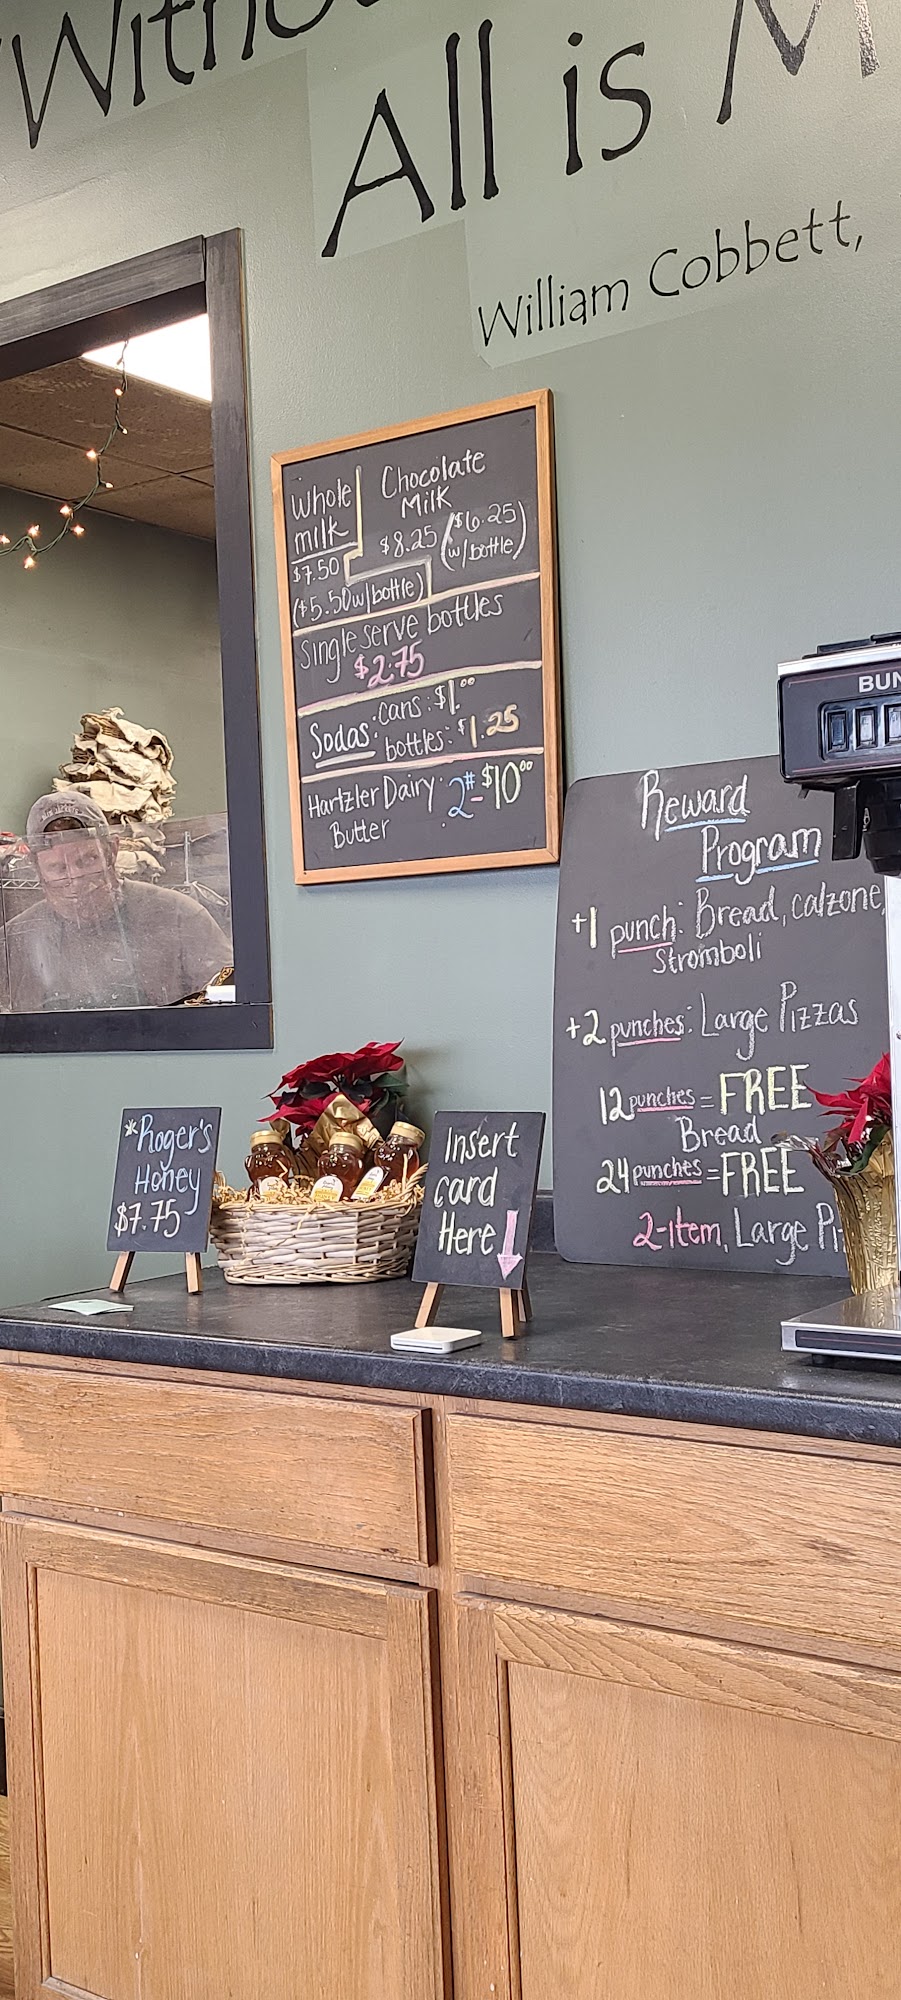 All is
William Cobbett,
Whole
milk
$7.50
($5.50 w/bottle)
Chocolate
Milk
$8.25 ($6.25)
w/bottle)
Single serve bottles
$2.75
Sodas: cans: $1.00
bottles: $1.25
Hartzler Dairy
Butter
2# - $10.00
Reward
Program
+1 punch: Bread, calzone,
Stromboli
+2 punches: Large Pizzas
12 punches = FREE
Bread
24 punches = FREE
2-Item, Large
*Roger's
Honey
$7.75
Insert
card
Here